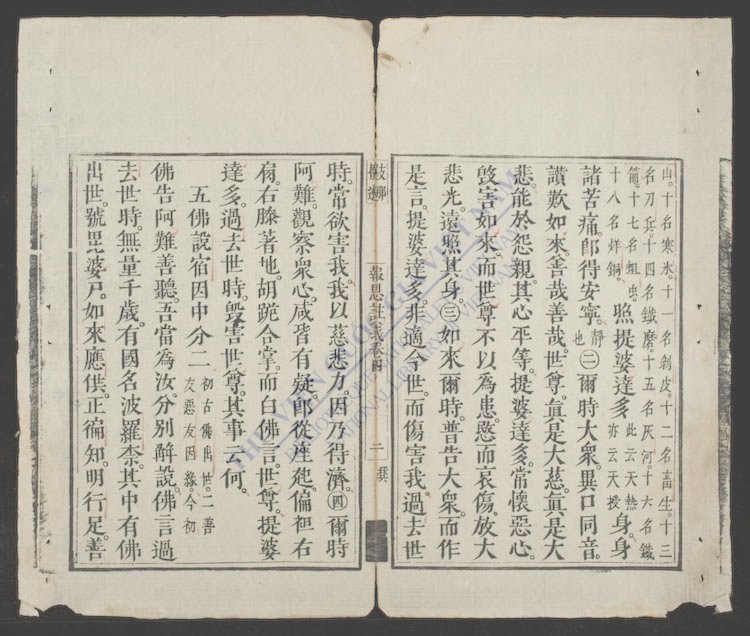 山。十名寒氷。十一名剝皮。十二名畜生。十三
名刀兵。十四名鐵磨。十五名灰河。十六名鐵
簡。十七名蛆虫。
十八名烊銅。照提婆達多此云天熱亦云天授身。身
諸苦痛。卽得安寧。靜也㊁爾時大衆。異口同音。
讃歎如來。善哉善哉。世尊。眞是大慈。眞是大
悲。能於怨親。其心平等。提婆達多。常懷惡心。
毀害如來。而世尊不以為患。愍而哀傷。放大
悲光。遠照其身。㊂如來爾時。普告大衆。而作
是言。提婆達多。非適今世。而傷害我。過去世
報恩註義卷四
二
時。常欲害我。我以慈悲力。因乃得濟。㊃爾時
阿難。觀察衆心。咸皆有疑。卽從座起。偏袒右
肩。右膝著地。胡跪合掌。而白佛言。世尊。提婆
達多。過去世時。毀害世尊。其事云何。
五佛說宿因中分二初古佛出世。二善友惡友因緣。今初
佛告阿難善聽。吾當為汝。分別解說。佛言過
去世時。無量千歲。有國名波羅柰。其中有佛
出世。號毘婆尸。如來應供。正徧知。明行足。善
THƯ VIỆN QUỐC GIA VIỆT NAM
NATIONAL LIBRARY OF VIETNAM